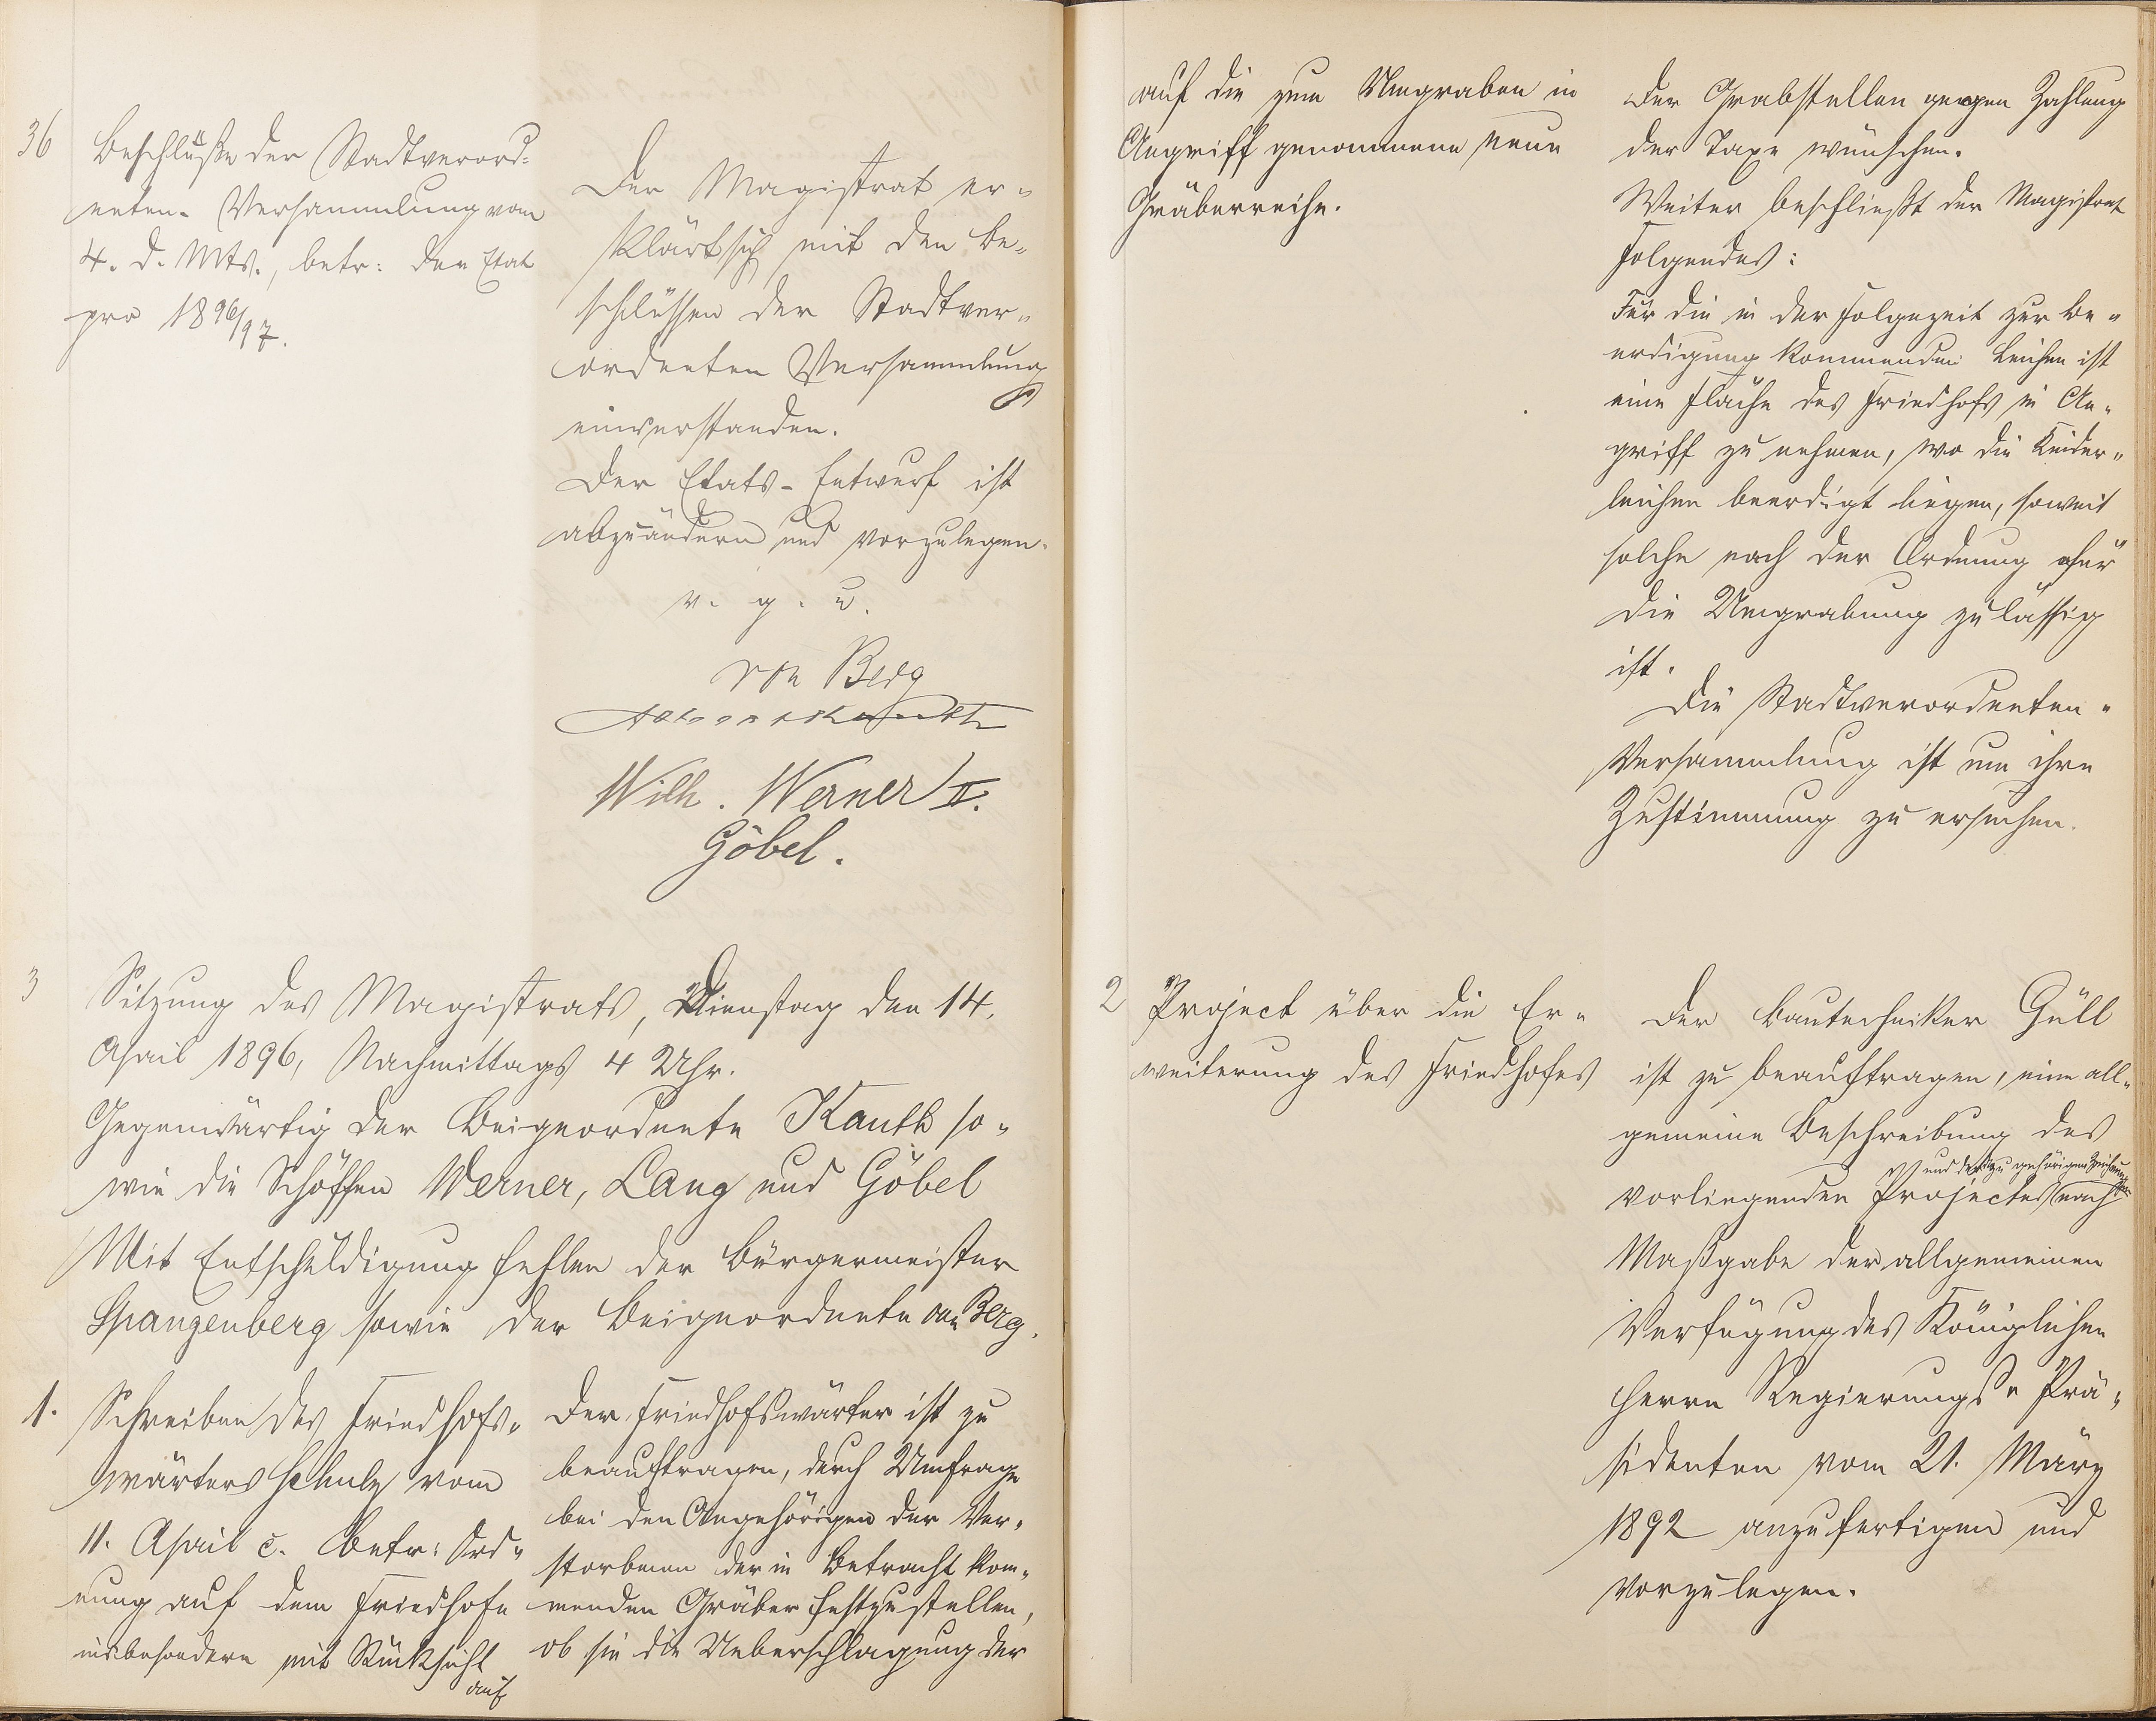 36
Beschlüße der Stadtverord-
neten-Versammlung vom
4. d. Mts., betr: den Etat
pro 1896/97.
Der Magistrat er-
klärt sich mit den Be-
schlüssen der Stadtver-
ordneten Versammlung
einverstanden.
Der Etats-Entwurf ist
abzuändern und vorzulegen.
v. g. u.
von Berg
Wilh. Werner II.
Göbel.
3
Sitzung des Magistrats, Dienstag den 14.
April 1896, Nachmittags 4 Uhr.
Gegenwärtig der Beigeordnete Kauth so-
wie die Schöffen Werner, Lang und Göbel
Mit Entschuldigung fehlen der Bürgermeister
Spangenberg sowie der Beigeordnete von Berg.
1.
Schreiben des Friedhofs-
wärters Schulz vom
11. April c. betr: Ord-
nung auf dem Friedhofe
insbesondere mit Rücksicht
auf
Der Friedhofswärter ist zu
beauftragen, durch Umfrage
bei den Angehörigen der Ver-
storbenen der in Betracht kom-
menden Gräber festzustellen,
ob sie die Ueberschlagung der
auf die zum Umgraben in
Angriff genommene neue
Gräberreihe.
der Grabstellen gegen Zahlung
der Taxe wünschen.
Weiter beschließt der Magistrat
Folgendes:
Für die in der Folgezeit zur Be-
erdigung kommenden Leichen ist
eine Fläche des Friedhofs in An-
griff zu nehmen, wo die Kinder-
leichen beerdigt liegen, soweit
solche nach der Ordnung für
die Umgrabung zulässig
ist.
Die Stadtverordneten-
Versammlung ist um ihre
Zustimmung zu ersuchen.
2
Project über die Er-
weiterung des Friedhofes
Der Bautechniker Güll
ist zu beauftragen, eine all-
gemeine Beschreibung des
und der zu gehörigen Zeichnungen
vorliegenden Projectes nach
Maßgabe der allgemeinen
Verfügung des Königlichen
Herrn Regierungs-Prä-
sidenten vom 21. März
1892 anzufertigen und
vorzulegen.